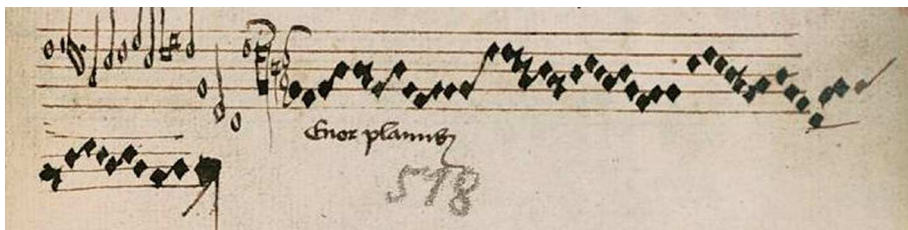 Enor planus
518